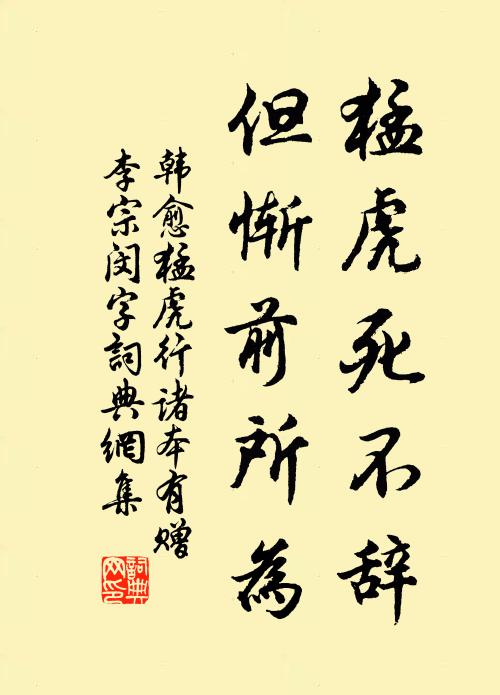 猛虎死不辞
但惭前所為
韩愈猛虎行诸本有赠
李宗闵字詞典網集
詞典网印